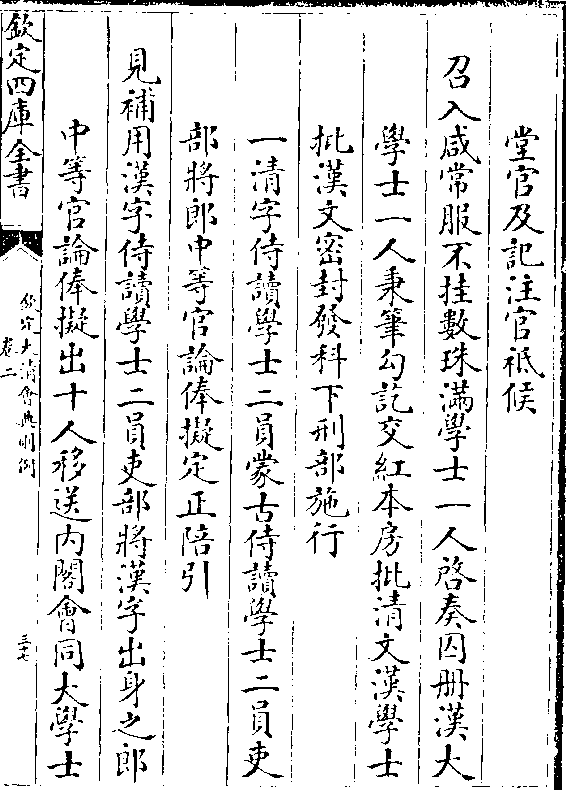 堂官及記注官祗候
召入咸常服不挂數珠滿學士一人啓奏囚册漢大
學士一人秉筆勾訖交紅本房批清文漢學士
批漢文密封發科下刑部施行
一清字侍讀學士二員蒙古侍讀學士二員吏
部將郎中等官論俸擬定正陪引
見補用漢字侍讀學士二員吏部將漢字出身之郎
中等官論俸擬出十人移送内閣會同大學士
欽定四庫全書
欽定大清會典則例
卷二
三十七